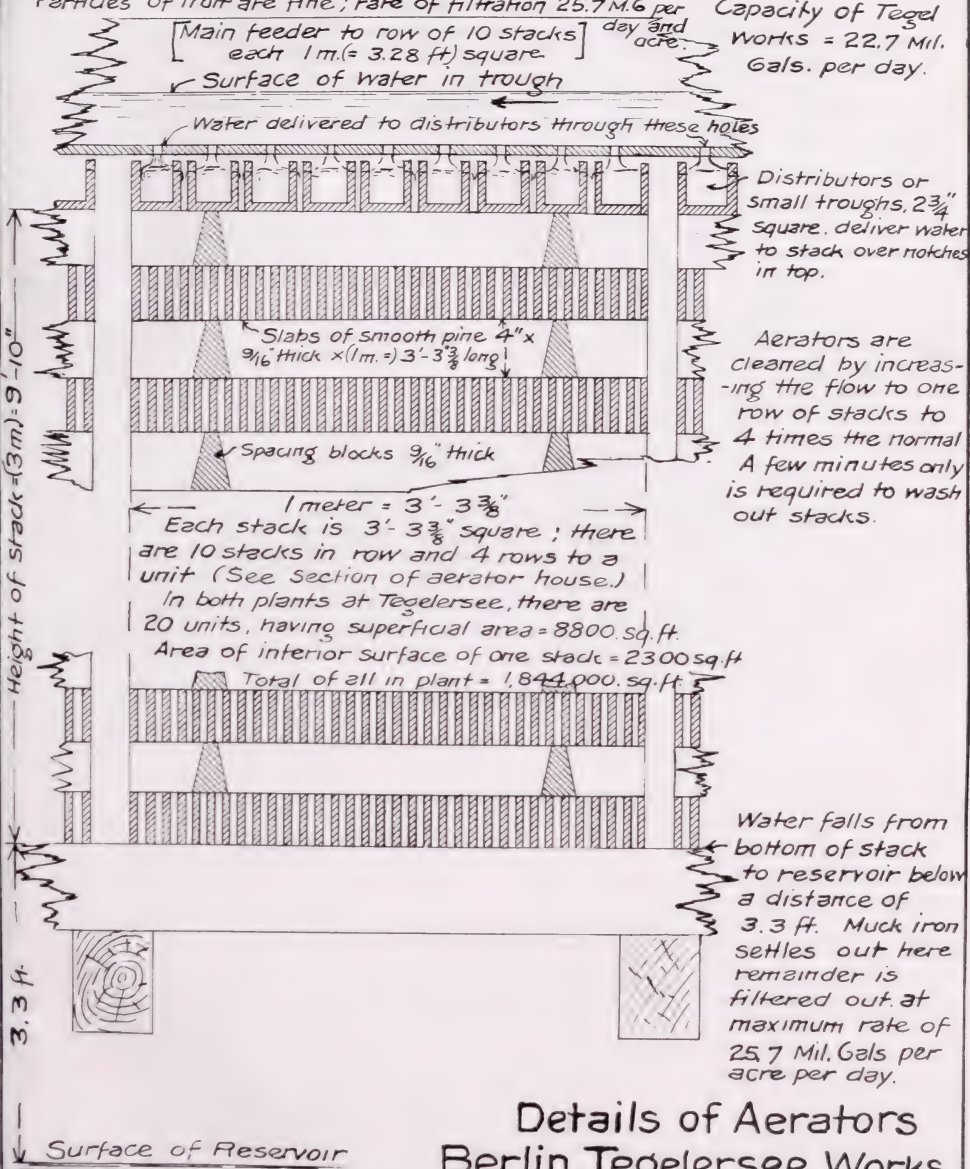 Particles of iron are fine; rate of filtration 25.7 M.G per
day and
acre.
[Main feeder to row of 10 stacks]
each 1 m.(= 3.28 ft) square.
Surface of water in trough
Capacity of Tegel
Works = 22.7 Mil.
Gals. per day.
Water delivered to distributors through these holes
Distributors or
small troughs, 2 3/4"
square. deliver water
to stack over notches
in top.
Slabs of smooth pine 4" x
9/16" thick x (1 m. =) 3'- 3 3/8" long
Aerators are
cleaned by increas-
-ing the flow to one
row of stacks to
4 times the normal
A few minutes only
is required to wash
out stacks.
Spacing blocks 9/16" thick
Height of stack =(3 m)= 9'-10"
1 meter = 3'- 3 3/8"
Each stack is 3'- 3 3/8" square; there
are 10 stacks in row and 4 rows to a
unit (See Section of aerator house.)
In both plants at Tegelersee, there are
20 units, having superficial area = 8800. sq. ft.
Area of interior surface of one stack = 2300 sq. ft
Total of all in plant = 1,844,000. sq. ft.
Water falls from
bottom of stack
to reservoir below
a distance of
3.3 ft. Muck iron
settles out here
remainder is
filtered out at
maximum rate of
25.7 Mil. Gals per
acre per day.
3.3 ft.
Surface of Reservoir
Details of Aerators
Berlin Tegelersee Works